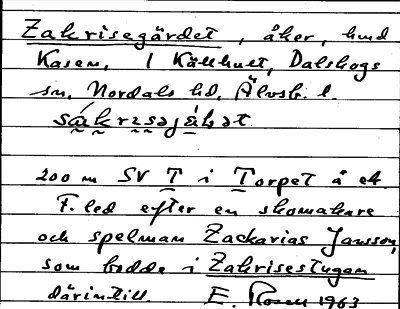 Zakrisegärdet, åker, hmd
Kasen, 1 Källhult, Dalskogs
sn, Nordals hd, Älvsb. l.
200 m SV T i Torpet å ek.
F. led efter en skomakare
och spelman Zackarias Jansson,
som bodde i Zakrisestugan
därintill. E. Rosen 1963